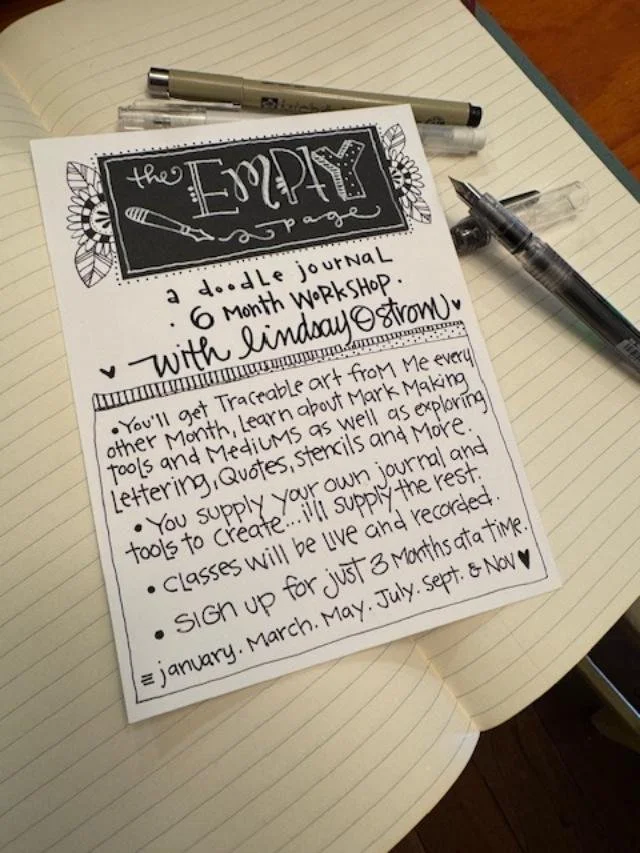 the EMPTY
page
a doodle journal
. 6 Month Workshop.
with lindsay Ostrom
• You'll get Traceable art from Me every
other Month, Learn about Mark Making
tools and Mediums as well as exploring
Lettering, Quotes, Stencils and More.
• You supply your own journal and
tools to create...i'll supply the rest.
• Classes will be live and recorded.
• Sign up for just 3 Months at a time.
= january. March. May. July. Sept. & Nov